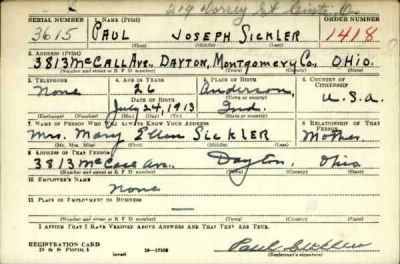 219 Dorsey St Cinti, O.
SERIAL NUMBER 1. NAME (Print) ORDER NUMBER
3615 PAUL JOSEPH SICKLER 1418
(First) (Middle) (Last)
2. ADDRESS (Print)
3813 McCALL AVE., DAYTON, MONTGOMERY CO., OHIO.
(Number and street or R. F. D. number) (Town) (County) (State)
3. TELEPHONE 4. AGE IN YEARS 5. PLACE OF BIRTH 6. COUNTRY OF CITIZENSHIP
None 26 Anderson,
DATE OF BIRTH (Town or county) U.S.A.
July 24, 1913 Ind.
(Exchange) (Number) (Mo.) (Day) (Yr.) (State or country)
7. NAME OF PERSON WHO WILL ALWAYS KNOW YOUR ADDRESS 8. RELATIONSHIP OF THAT PERSON
Mrs. Mary Ellen SICKLER Mother
(Mr., Mrs., Miss) (First) (Middle) (Last)
9. ADDRESS OF THAT PERSON
3813 McCall Ave., Dayton, Ohio
(Number and street or R. F. D. number) (Town) (County) (State)
10. EMPLOYER'S NAME
None
11. PLACE OF EMPLOYMENT OR BUSINESS
(Number and street or R. F. D. number) (Town) (County) (State)
I AFFIRM THAT I HAVE VERIFIED ABOVE ANSWERS AND THAT THEY ARE TRUE.
REGISTRATION CARD
D. S. S. FORM 1 16—17105 Paul Sickler
(over) (Registrant's signature)